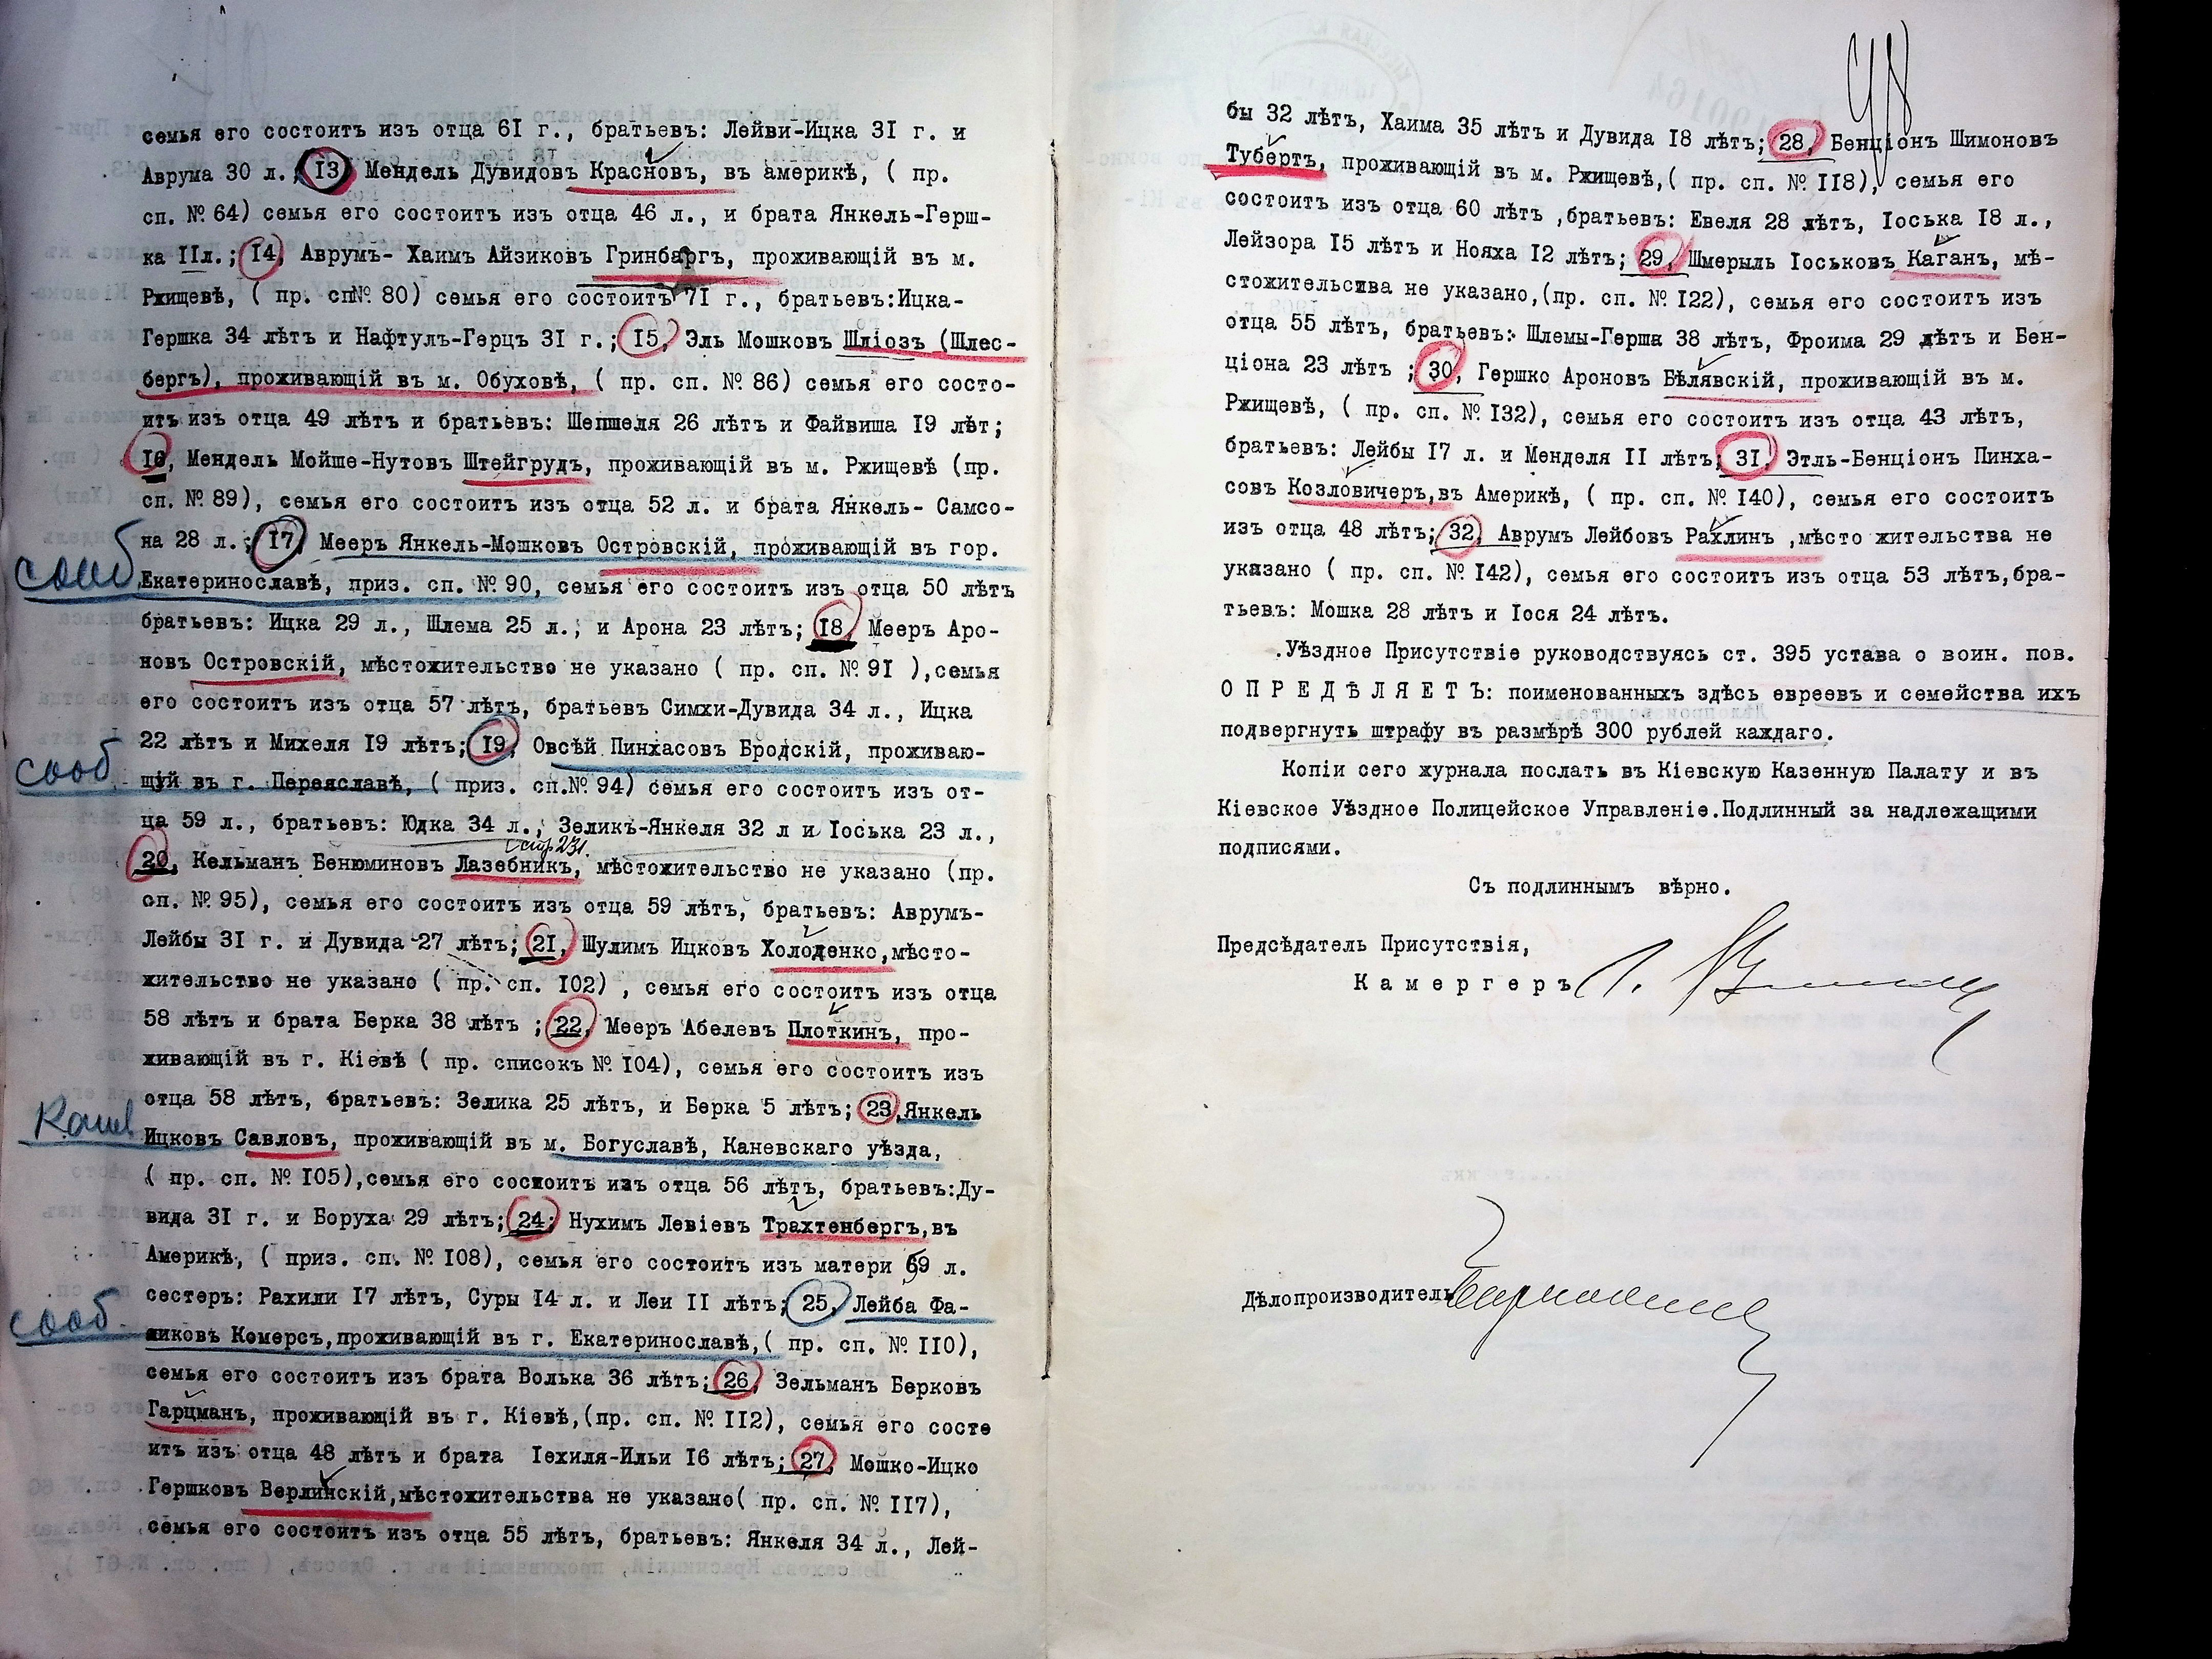 семья его состоитъ изъ отца 61 г., братьевъ: Лейви-Ицка 31 г. и
Аврума 30 л.; 13, Мендель Дувидовъ Красновъ, въ америкѣ, ( пр.
сп. № 64) семья его состоитъ изъ отца 46 л., и брата Янкель-Герш-
ка 11л.; 14, Аврумъ- Хаимъ Айзиковъ Гринбергъ, проживающій въ м.
Ржищевѣ, ( пр. сп№ 80) семья его состоитъ 71 г., братьевъ:Ицка-
Гершка 34 лѣтъ и Нафтулъ-Герцъ 31 г.; 15, Эль Мошковъ Шліозъ (Шлес-
бергъ), проживающій въ м. Обуховѣ, ( пр. сп. № 86) семья его состо-
итъ изъ отца 49 лѣтъ и братьевъ: Шепшеля 26 лѣтъ и Файвиша 19 лѣт;
16, Мендель Мойше-Нутовъ Штейгрудъ, проживающій въ м. Ржищевѣ (пр.
сп. № 89), семья его состоитъ изъ отца 52 л. и брата Янкель- Самсо-
на 28 л.; 17, Мееръ Янкель-Мошковъ Островскій, проживающій въ гор.
сооб Екатеринославѣ, приз. сп. № 90, семья его состоитъ изъ отца 50 лѣтъ
братьевъ: Ицка 29 л., Шлема 25 л.; и Арона 23 лѣтъ; 18, Мееръ Аро-
новъ Островскій, мѣстожительство не указано ( пр. сп. № 91 ),семья
его состоитъ изъ отца 57 лѣтъ, братьевъ Симхи-Дувида 34 л., Ицка
22 лѣтъ и Михеля 19 лѣтъ; 19, Овсѣй Пинхасовъ Бродскій, проживаю-
сооб щій въ г. Переяславѣ, ( приз. сп.№ 94) семья его состоитъ изъ от-
ца 59 л., братьевъ: Юдка 34 л., Зеликъ-Янкеля 32 л и Іоська 23 л.,
стр 231.
20, Кельманъ Бенюминовъ Лазебникъ, мѣстожительство не указано (пр.
сп. № 95), семья его состоитъ изъ отца 59 лѣтъ, братьевъ: Аврумъ-
Лейбы 31 г. и Дувида 27 лѣтъ; 21, Шулимъ Ицковъ Холоденко,мѣсто-
жительство не указано ( пр. сп. 102) , семья его состоитъ изъ отца
58 лѣтъ и брата Берка 38 лѣтъ ; 22, Мееръ Абелевъ Плоткинъ, про-
живающій въ г. Кіевѣ ( пр. список № 104), семья его состоитъ изъ
отца 58 лѣтъ, братьевъ: Зелика 25 лѣтъ, и Берка 5 лѣтъ; 23,Янкель
Ицковъ Савловъ, проживающій въ м. Богуславѣ, Каневскаго уѣзда,
( пр. сп. № 105),семья его состоитъ изъ отца 56 лѣтъ, братьевъ:Ду-
вида 31 г. и Боруха 29 лѣтъ; 24; Нухимъ Левіевъ Трахтенбергъ,въ
Америкѣ, ( приз. сп. № 108), семья его состоитъ изъ матери 59 л.
сестеръ: Рахили 17 лѣтъ, Суры 14 л. и Леи 11 лѣтъ; 25, Лейба Фа-
сооб никовъ Комерсъ,проживающій въ г. Екатеринославѣ,( пр. сп. № 110),
семья его состоитъ изъ брата Волька 36 лѣтъ; 26, Зельманъ Берковъ
Гарцманъ, проживающій въ г. Кіевѣ,(пр. сп. № 112), семья его состо
итъ изъ отца 48 лѣтъ и брата Іехиля-Ильи 16 лѣтъ; 27, Мошко-Ицко
Гершковъ Верлинскій,мѣстожительства не указано( пр. сп. № 117),
семья его состоитъ изъ отца 55 лѣтъ, братьевъ: Янкеля 34 л., Лей-
бы 32 лѣтъ, Хаима 35 лѣтъ и Дувида 18 лѣтъ; 28, Бенціонъ Шимоновъ
Тубертъ, проживающій въ м. Ржищевѣ,( пр. сп. № 118), семья его
состоитъ изъ отца 60 лѣтъ ,братьевъ: Евеля 28 лѣтъ, Іоська 18 л.,
Лейзора 15 лѣтъ и Нояха 12 лѣтъ; 29, Шмерыль Іоськовъ Каганъ, мѣ-
стожительсива не указано,(пр. сп. № 122), семья его состоитъ изъ
отца 55 лѣтъ, братьевъ: Шлемы-Герша 38 лѣтъ, Фроима 29 лѣтъ и Бен-
ціона 23 лѣтъ ; 30, Гершко Ароновъ Бѣлявскій, проживающій въ м.
Ржищевѣ, ( пр. сп. № 132), семья его состоитъ изъ отца 43 лѣтъ,
братьевъ: Лейбы 17 л. и Менделя 11 лѣтъ; 31, Этль-Бенціонъ Пинха-
совъ Козловичеръ,въ Америкѣ, ( пр. сп. № 140), семья его состоитъ
изъ отца 48 лѣтъ; 32, Аврумъ Лейбовъ Рахлинъ ,мѣсто жительства не
указано ( пр. сп. № 142), семья его состоитъ изъ отца 53 лѣтъ,бра-
тьевъ: Мошка 28 лѣтъ и Іося 24 лѣтъ.
Уѣздное Присутствіе руководствуясь ст. 395 устава о воин. пов.
О П Р Е Д Ѣ Л Я Е Т Ъ: поименованныхъ здѣсь евреевъ и семейства ихъ
подвергнуть штрафу въ размѣрѣ 300 рублей каждаго.
Копіи сего журнала послать въ Кіевскую Казенную Палату и въ
Кіевское Уѣздное Полицейское Управленіе.Подлинный за надлежащими
подписями.
Съ подлиннымъ вѣрно.
Предсѣдатель Присутствія,
К а м е р г е р ъ
Дѣлопроизводитель